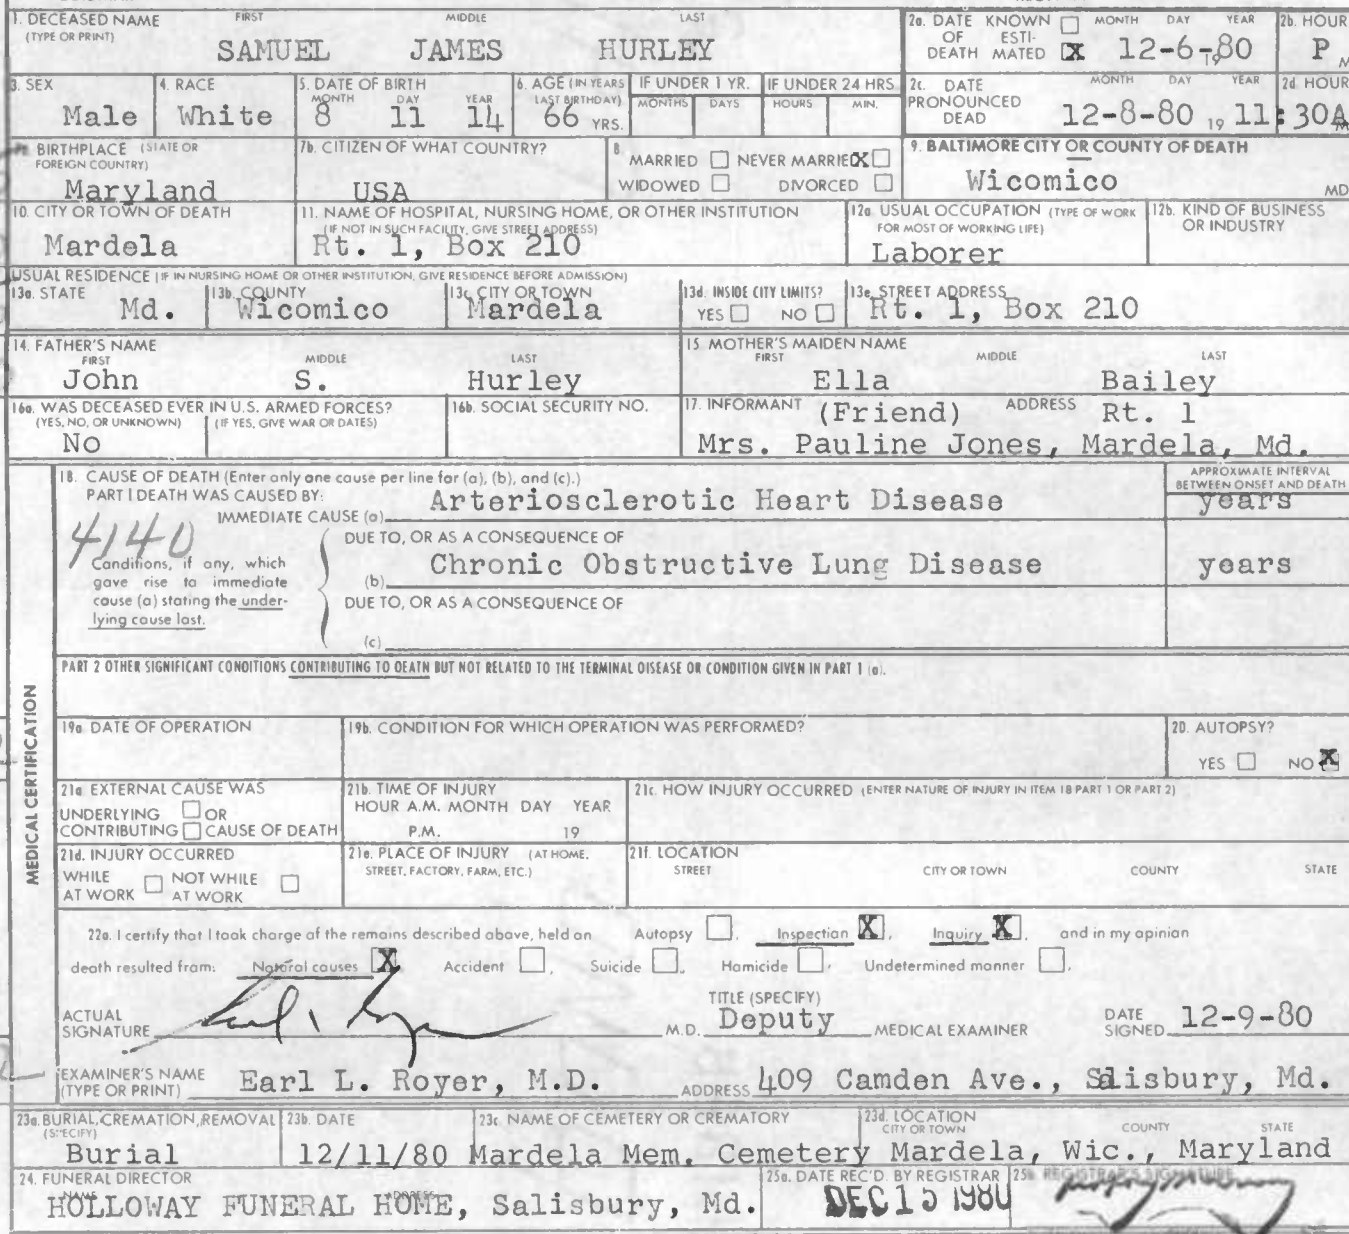 1. DECEASED NAME FIRST MIDDLE LAST
(TYPE OR PRINT)
SAMUEL JAMES HURLEY
2a. DATE KNOWN ☐ MONTH DAY YEAR
OF ESTI-
DEATH MATED ☒ 12-6-80 19
2b. HOUR
P M
3. SEX
Male
4. RACE
White
5. DATE OF BIRTH
MONTH DAY YEAR
8 11 14
6. AGE (IN YEARS
LAST BIRTHDAY)
66 YRS.
IF UNDER 1 YR.
MONTHS DAYS
IF UNDER 24 HRS
HOURS MIN.
2c. DATE MONTH DAY YEAR
PRONOUNCED
DEAD 12-8-80 19
2d HOUR
11:30A M
BIRTHPLACE (STATE OR
FOREIGN COUNTRY)
Maryland
7b. CITIZEN OF WHAT COUNTRY?
USA
8.
MARRIED ☐ NEVER MARRIED X☐
WIDOWED ☐ DIVORCED ☐
9. BALTIMORE CITY OR COUNTY OF DEATH
Wicomico MD
10. CITY OR TOWN OF DEATH
Mardela
11. NAME OF HOSPITAL, NURSING HOME, OR OTHER INSTITUTION
(IF NOT IN SUCH FACILITY, GIVE STREET ADDRESS)
Rt. 1, Box 210
12a. USUAL OCCUPATION (TYPE OF WORK
FOR MOST OF WORKING LIFE)
Laborer
12b. KIND OF BUSINESS
OR INDUSTRY
USUAL RESIDENCE (IF IN NURSING HOME OR OTHER INSTITUTION, GIVE RESIDENCE BEFORE ADMISSION)
13a. STATE
Md.
13b. COUNTY
Wicomico
13c. CITY OR TOWN
Mardela
13d. INSIDE CITY LIMITS?
YES ☐ NO ☐
13e. STREET ADDRESS
Rt. 1, Box 210
14. FATHER'S NAME
FIRST MIDDLE LAST
John S. Hurley
15. MOTHER'S MAIDEN NAME
FIRST MIDDLE LAST
Ella Bailey
16a. WAS DECEASED EVER IN U.S. ARMED FORCES?
(YES, NO, OR UNKNOWN) (IF YES, GIVE WAR OR DATES)
No
16b. SOCIAL SECURITY NO.
17. INFORMANT (Friend) ADDRESS Rt. 1
Mrs. Pauline Jones, Mardela, Md.
18. CAUSE OF DEATH (Enter only one cause per line for (a), (b), and (c).)
PART I DEATH WAS CAUSED BY:
IMMEDIATE CAUSE (a) Arteriosclerotic Heart Disease
APPROXIMATE INTERVAL
BETWEEN ONSET AND DEATH
years
4140
Conditions, if any, which
gave rise to immediate
cause (a) stating the under-
lying cause last.
DUE TO, OR AS A CONSEQUENCE OF
(b) Chronic Obstructive Lung Disease years
DUE TO, OR AS A CONSEQUENCE OF
(c)
PART 2 OTHER SIGNIFICANT CONDITIONS CONTRIBUTING TO DEATH BUT NOT RELATED TO THE TERMINAL DISEASE OR CONDITION GIVEN IN PART 1 (a).
MEDICAL CERTIFICATION
19a. DATE OF OPERATION
19b. CONDITION FOR WHICH OPERATION WAS PERFORMED?
20. AUTOPSY?
YES ☐ NO ☒
21a. EXTERNAL CAUSE WAS
UNDERLYING ☐ OR
CONTRIBUTING ☐ CAUSE OF DEATH
21b. TIME OF INJURY
HOUR A.M. MONTH DAY YEAR
P.M. 19
21c. HOW INJURY OCCURRED (ENTER NATURE OF INJURY IN ITEM 18 PART 1 OR PART 2)
21d. INJURY OCCURRED
WHILE ☐ NOT WHILE ☐
AT WORK AT WORK
21e. PLACE OF INJURY (AT HOME,
STREET, FACTORY, FARM, ETC.)
21f. LOCATION
STREET CITY OR TOWN COUNTY STATE
22a. I certify that I took charge of the remains described above, held an Autopsy ☐, Inspection ☒, Inquiry ☒, and in my opinion
death resulted from: Natural causes ☒ Accident ☐, Suicide ☐, Homicide ☐, Undetermined manner ☐,
ACTUAL
SIGNATURE M.D.
TITLE (SPECIFY)
Deputy MEDICAL EXAMINER
DATE
SIGNED 12-9-80
EXAMINER'S NAME
(TYPE OR PRINT) Earl L. Royer, M.D. ADDRESS 409 Camden Ave., Salisbury, Md.
23a. BURIAL, CREMATION, REMOVAL
(SPECIFY)
Burial
23b. DATE
12/11/80
23c. NAME OF CEMETERY OR CREMATORY
Mardela Mem. Cemetery
23d. LOCATION
CITY OR TOWN COUNTY STATE
Mardela, Wic., Maryland
24. FUNERAL DIRECTOR
NAME ADDRESS
HOLLOWAY FUNERAL HOME, Salisbury, Md.
25a. DATE REC'D. BY REGISTRAR
DEC 15 1980
25b. REGISTRAR'S SIGNATURE